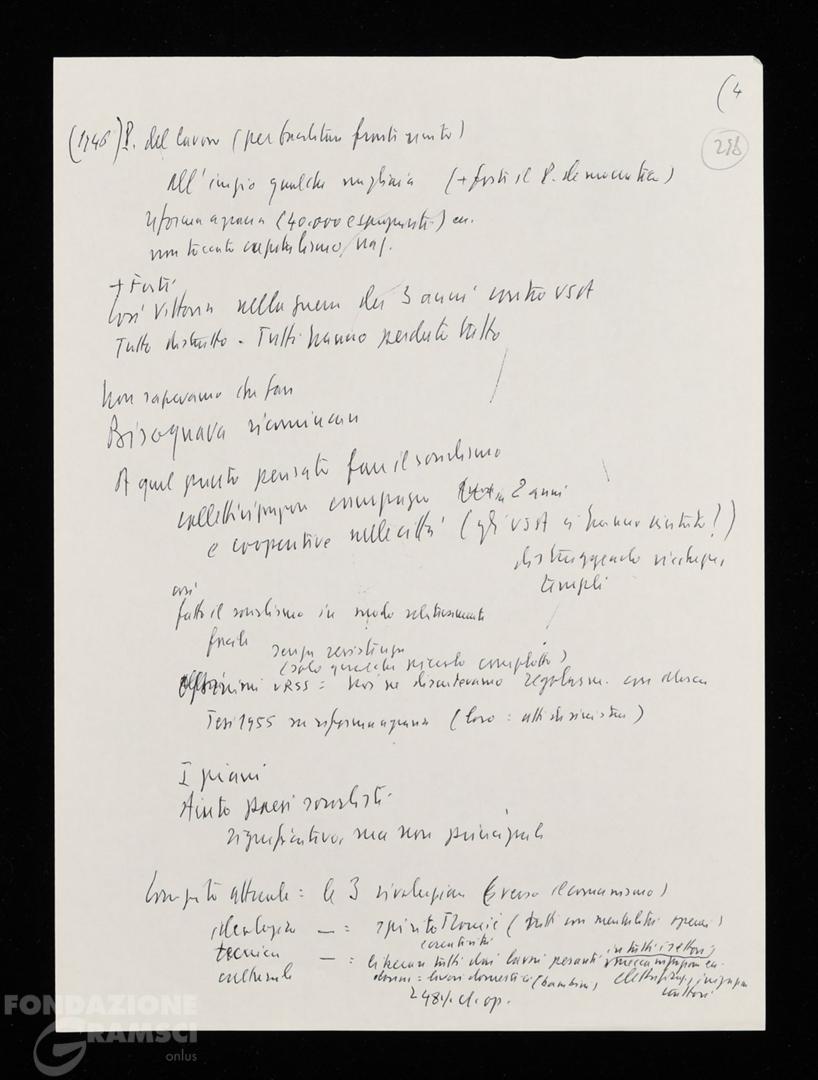 (4
298
(1946) P. del lavoro (per trasformare fronte unito)
All'inizio qualche migliaia (+ forti il P. democratico)
riforma agraria (40.000 espropriati) ecc.
non toccato capitalismo naz.
+ Forti
Così Vittoria nella guerra dei 3 anni contro USA
Tutto distrutto. Tutti hanno perduto tutto
Non sapevamo che fare
Bisognava ricominciare
A quel punto pensato fare il socialismo
collettivizzazione campagne in 2 anni
e cooperative nelle città (gli USA ci hanno aiutato!)
distruggendo ricchezze,
templi
così
fatto il socialismo in modo relativamente
facile senza resistenza
(solo qualche piccolo complotto)
URSS = Noi ne discutevamo regolarm. con Mosca
Tesi 1955 su riforma agraria (loro: atti di sinistra)
I piani
Aiuto paesi socialisti
significativo, ma non principale
Compito attuale = le 3 rivoluzioni (verso il comunismo)
ideologica — = spirito (tutti con mentalità operai)
tecnica — = liberare tutti dai lavori pesanti in tutti i settori,
meccanizzazione ecc.
culturale donne = lavori domestici (bambini,
248 cl. op.